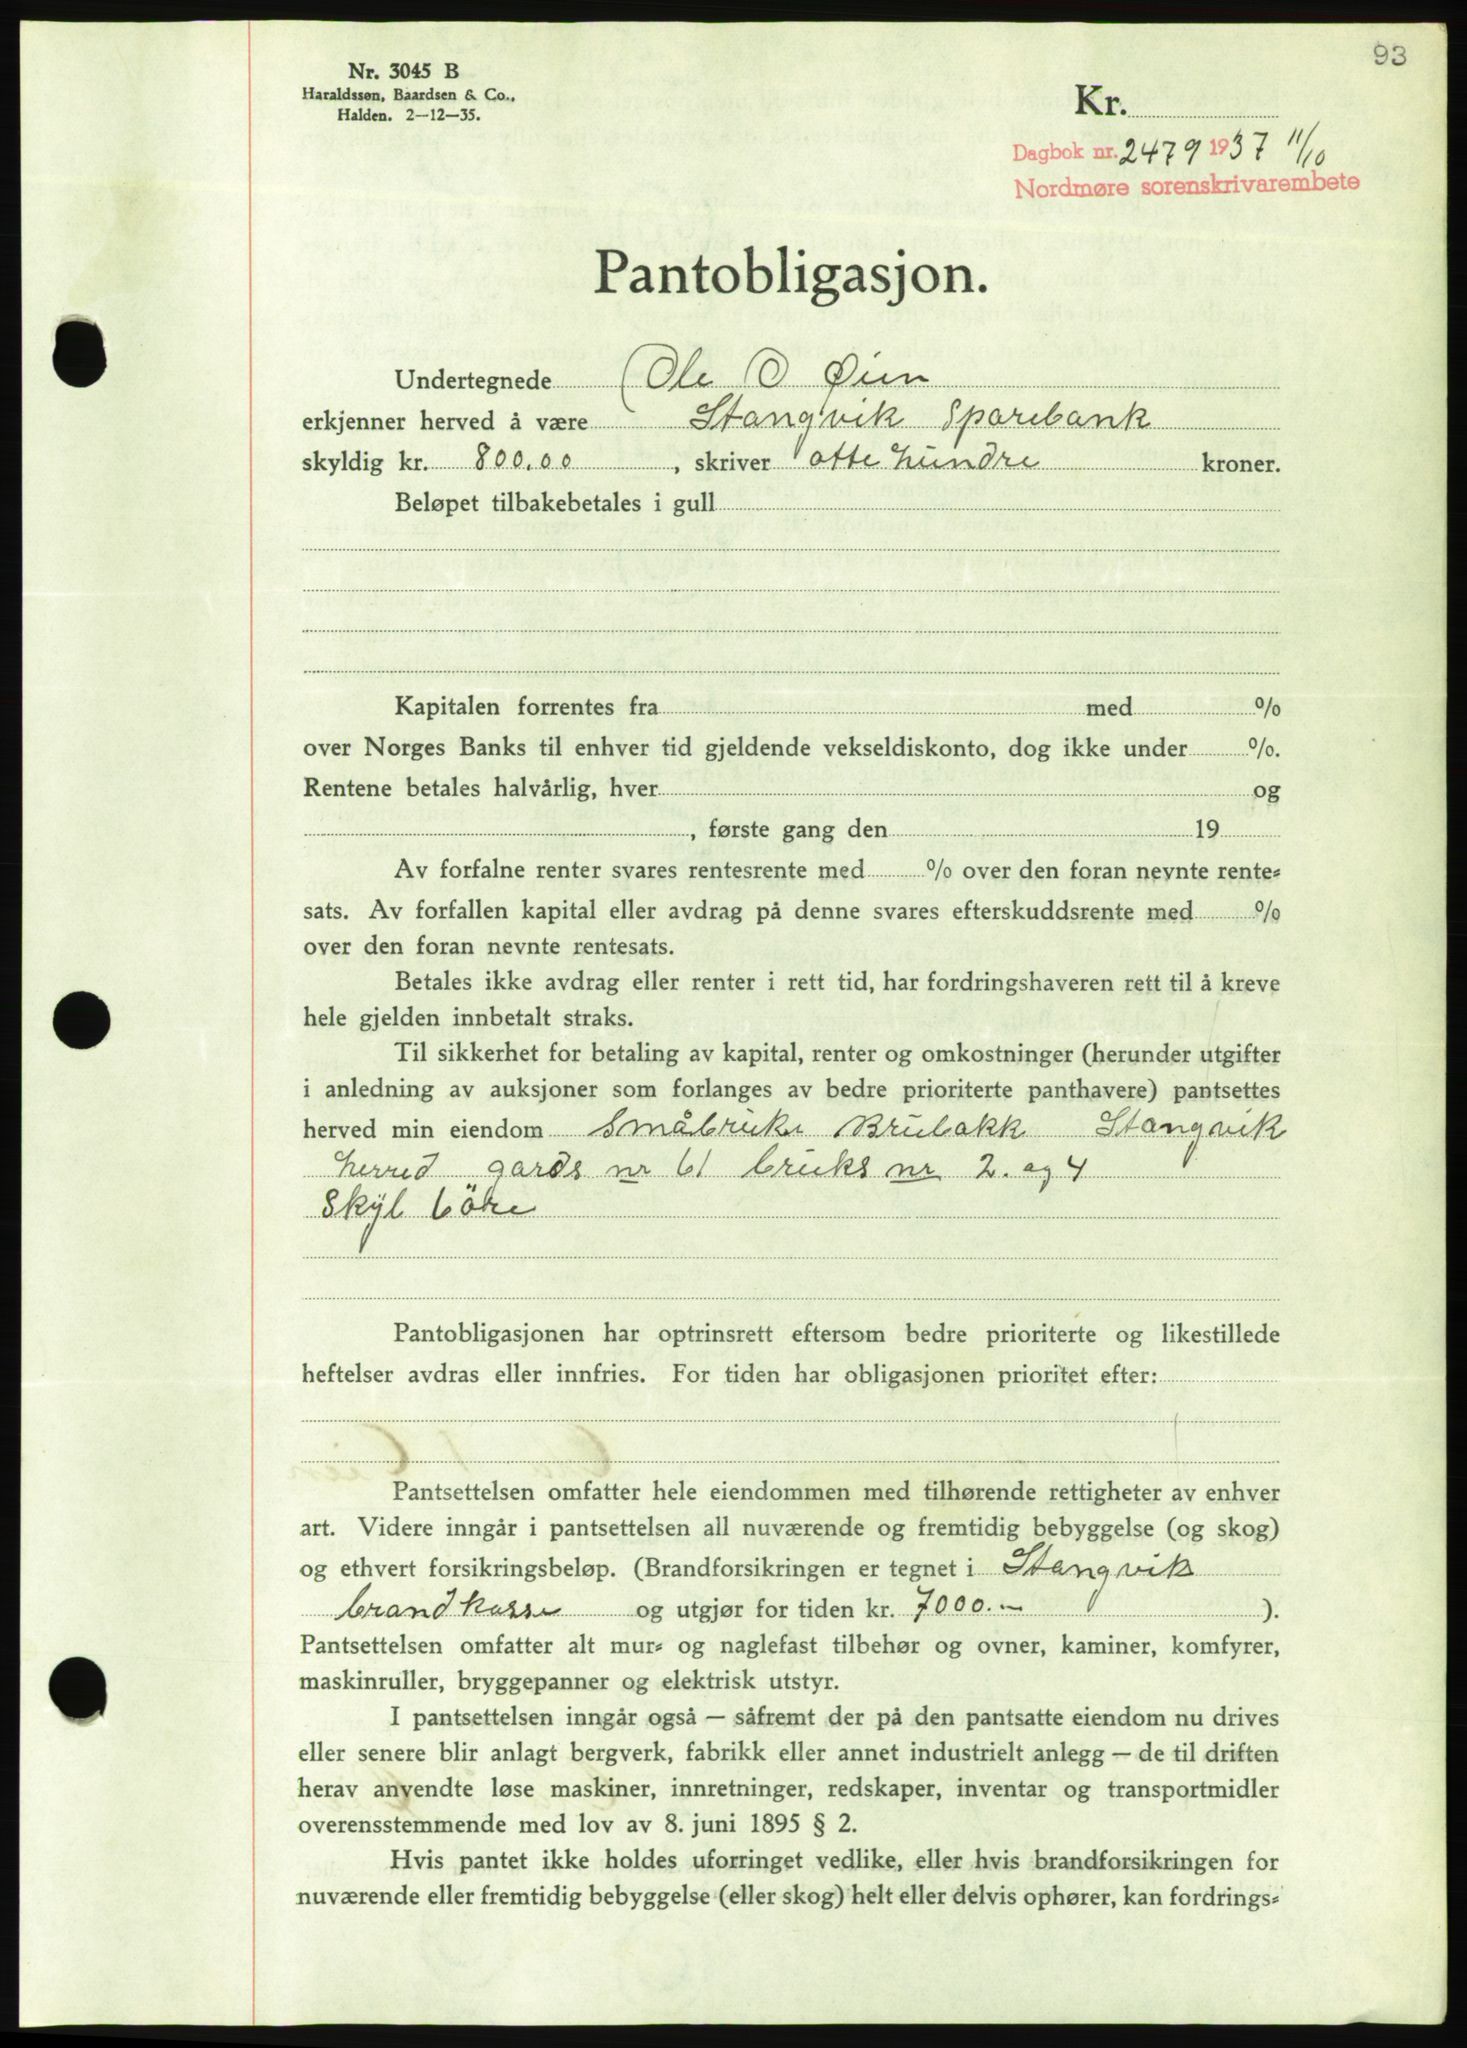 93
Nr. 3045 B
Haraldssøn, Baardsen & Co.,
Halden. 2—12—35.
Kr.
Dagbok nr. 2479 1937 11/10
Nordmøre sorenskrivarembete
Pantobligasjon.
Undertegnede Ole O Øien
erkjenner herved å være Stangvik Sparebank
skyldig kr. 800.00, skriver otte hundre kroner.
Beløpet tilbakebetales i gull
Kapitalen forrentes fra med %
over Norges Banks til enhver tid gjeldende vekseldiskonto, dog ikke under %.
Rentene betales halvårlig, hver og
, første gang den 19
Av forfalne renter svares rentesrente med % over den foran nevnte rente-
sats. Av forfallen kapital eller avdrag på denne svares efterskuddsrente med %
over den foran nevnte rentesats.
Betales ikke avdrag eller renter i rett tid, har fordringshaveren rett til å kreve
hele gjelden innbetalt straks.
Til sikkerhet for betaling av kapital, renter og omkostninger (herunder utgifter
i anledning av auksjoner som forlanges av bedre prioriterte panthavere) pantsettes
herved min eiendom Småbruke Brubakk Stangvik
herred gards nr 61 bruks nr 2. og 4
Skyl 6 öre
Pantobligasjonen har optrinsrett eftersom bedre prioriterte og likestillede
heftelser avdras eller innfries. For tiden har obligasjonen prioritet efter:
Pantsettelsen omfatter hele eiendommen med tilhørende rettigheter av enhver
art. Videre inngår i pantsettelsen all nuværende og fremtidig bebyggelse (og skog)
og ethvert forsikringsbeløp. (Brandforsikringen er tegnet i Stangvik
brandkasse og utgjør for tiden kr. 7000.— ).
Pantsettelsen omfatter alt mur- og naglefast tilbehør og ovner, kaminer, komfyrer,
maskinruller, bryggepanner og elektrisk utstyr.
I pantsettelsen inngår også — såfremt der på den pantsatte eiendom nu drives
eller senere blir anlagt bergverk, fabrikk eller annet industrielt anlegg — de til driften
herav anvendte løse maskiner, innretninger, redskaper, inventar og transportmidler
overensstemmende med lov av 8. juni 1895 § 2.
Hvis pantet ikke holdes uforringet vedlike, eller hvis brandforsikringen for
nuværende eller fremtidig bebyggelse (eller skog) helt eller delvis ophører, kan fordrings-